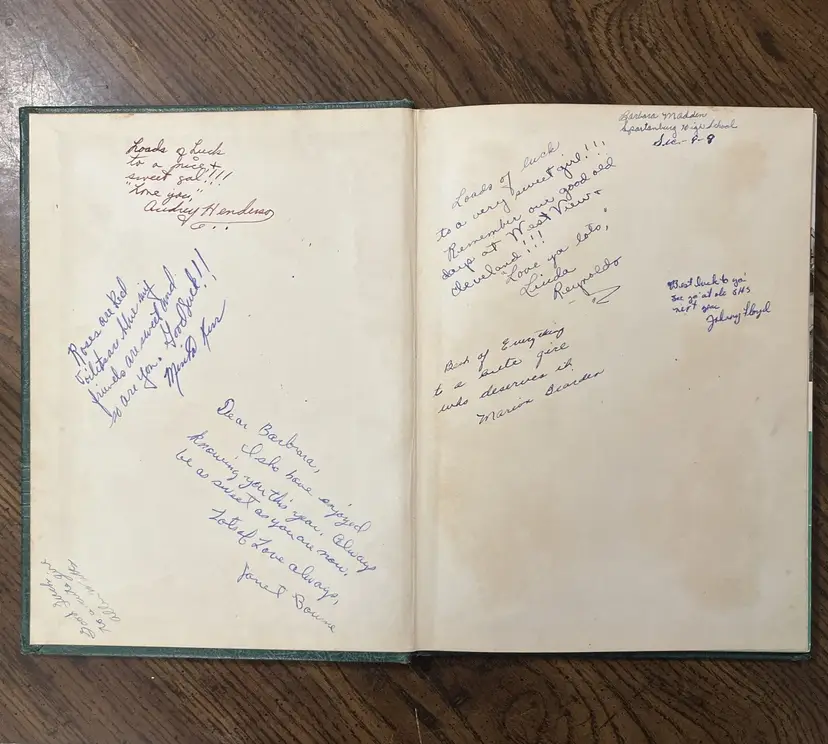 Loads of Luck
to a nice +
sweet gal!!!
"Love you,"
Audrey Henderson
Roses are Red
Violets are blue my
friends are sweet and
so are you. Good luck!!
Minta Kerr
Dear Barbara,
I sho have enjoyed
knowing you this year. Always
be as sweet as you are now.
Lots of Love always,
Janet Bourne
Good Luck
to a cute girl
Barbara Madden
Spartanburg High School
Sec-9-9
Loads of luck
to a very sweet girl!!!
Remember our good old
days at West View +
Cleveland!!!
"Love ya lots,"
Linda
Reynolds
Best of Everything
to a cute girl
who deserves it
Marion Bearden
Best luck to ya'
see ya' at ole SHS
next year
Johnny Floyd